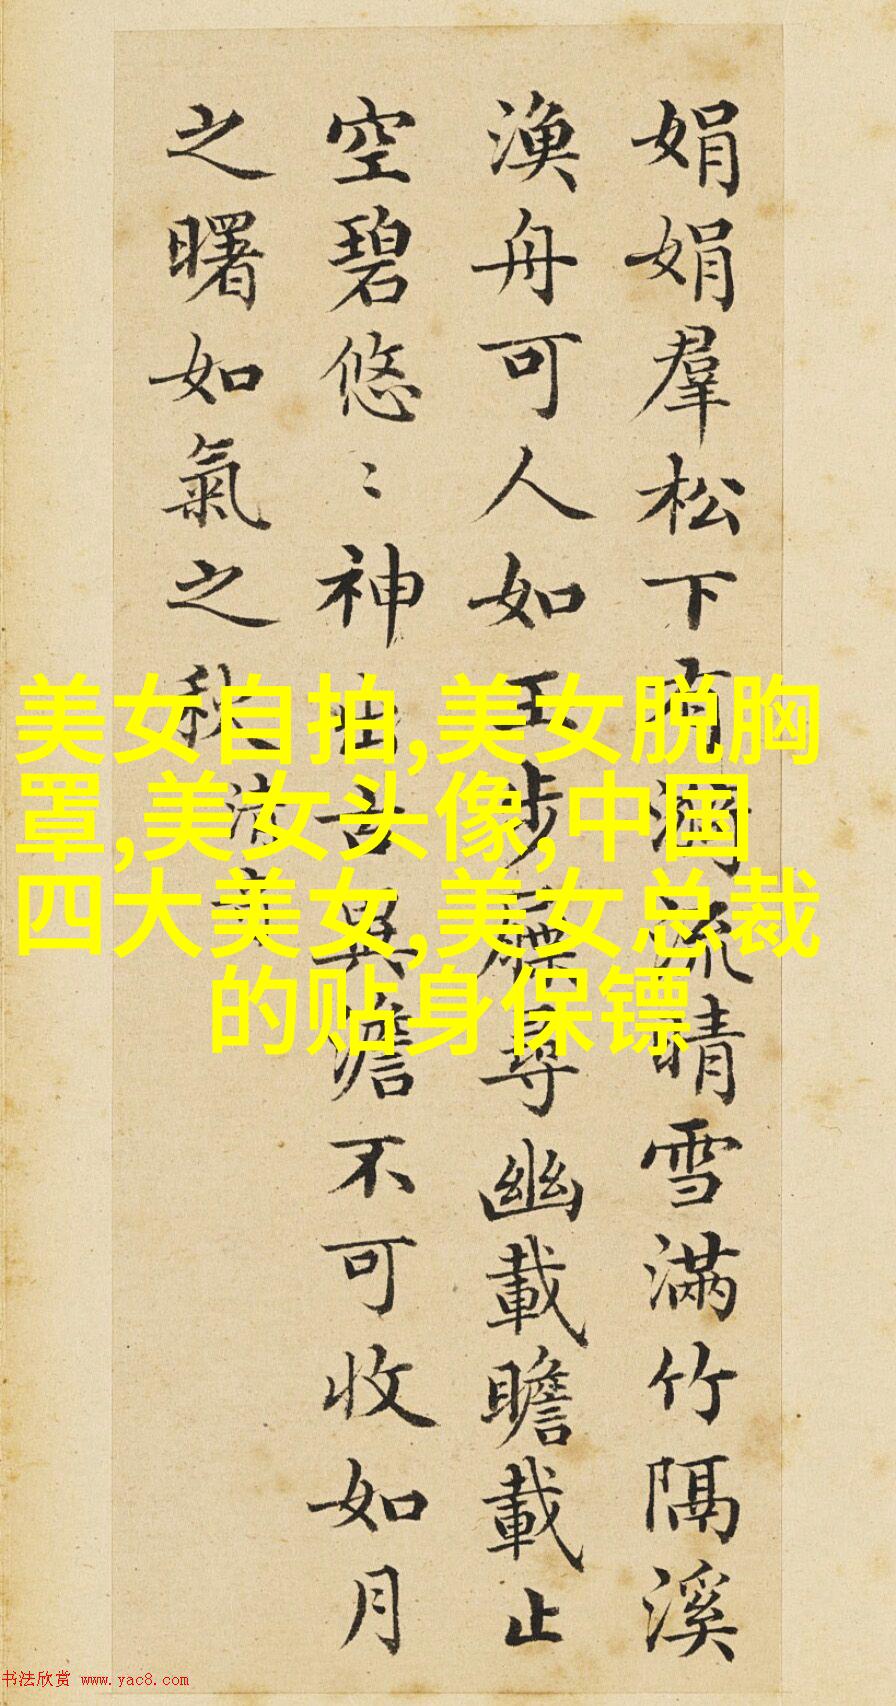 娟娟羣松下有漪流晴雪滿竹隔溪
漁舟可人如玉步屧尋幽載瞻載止
空碧悠〻神出古異澹不可收如月
之曙如氣之秋 清奇
美女自拍,美女脱胸
罩,美女头像,中国
四大美女,美女总裁
的贴身保镖
书法欣赏 www.yac8.com